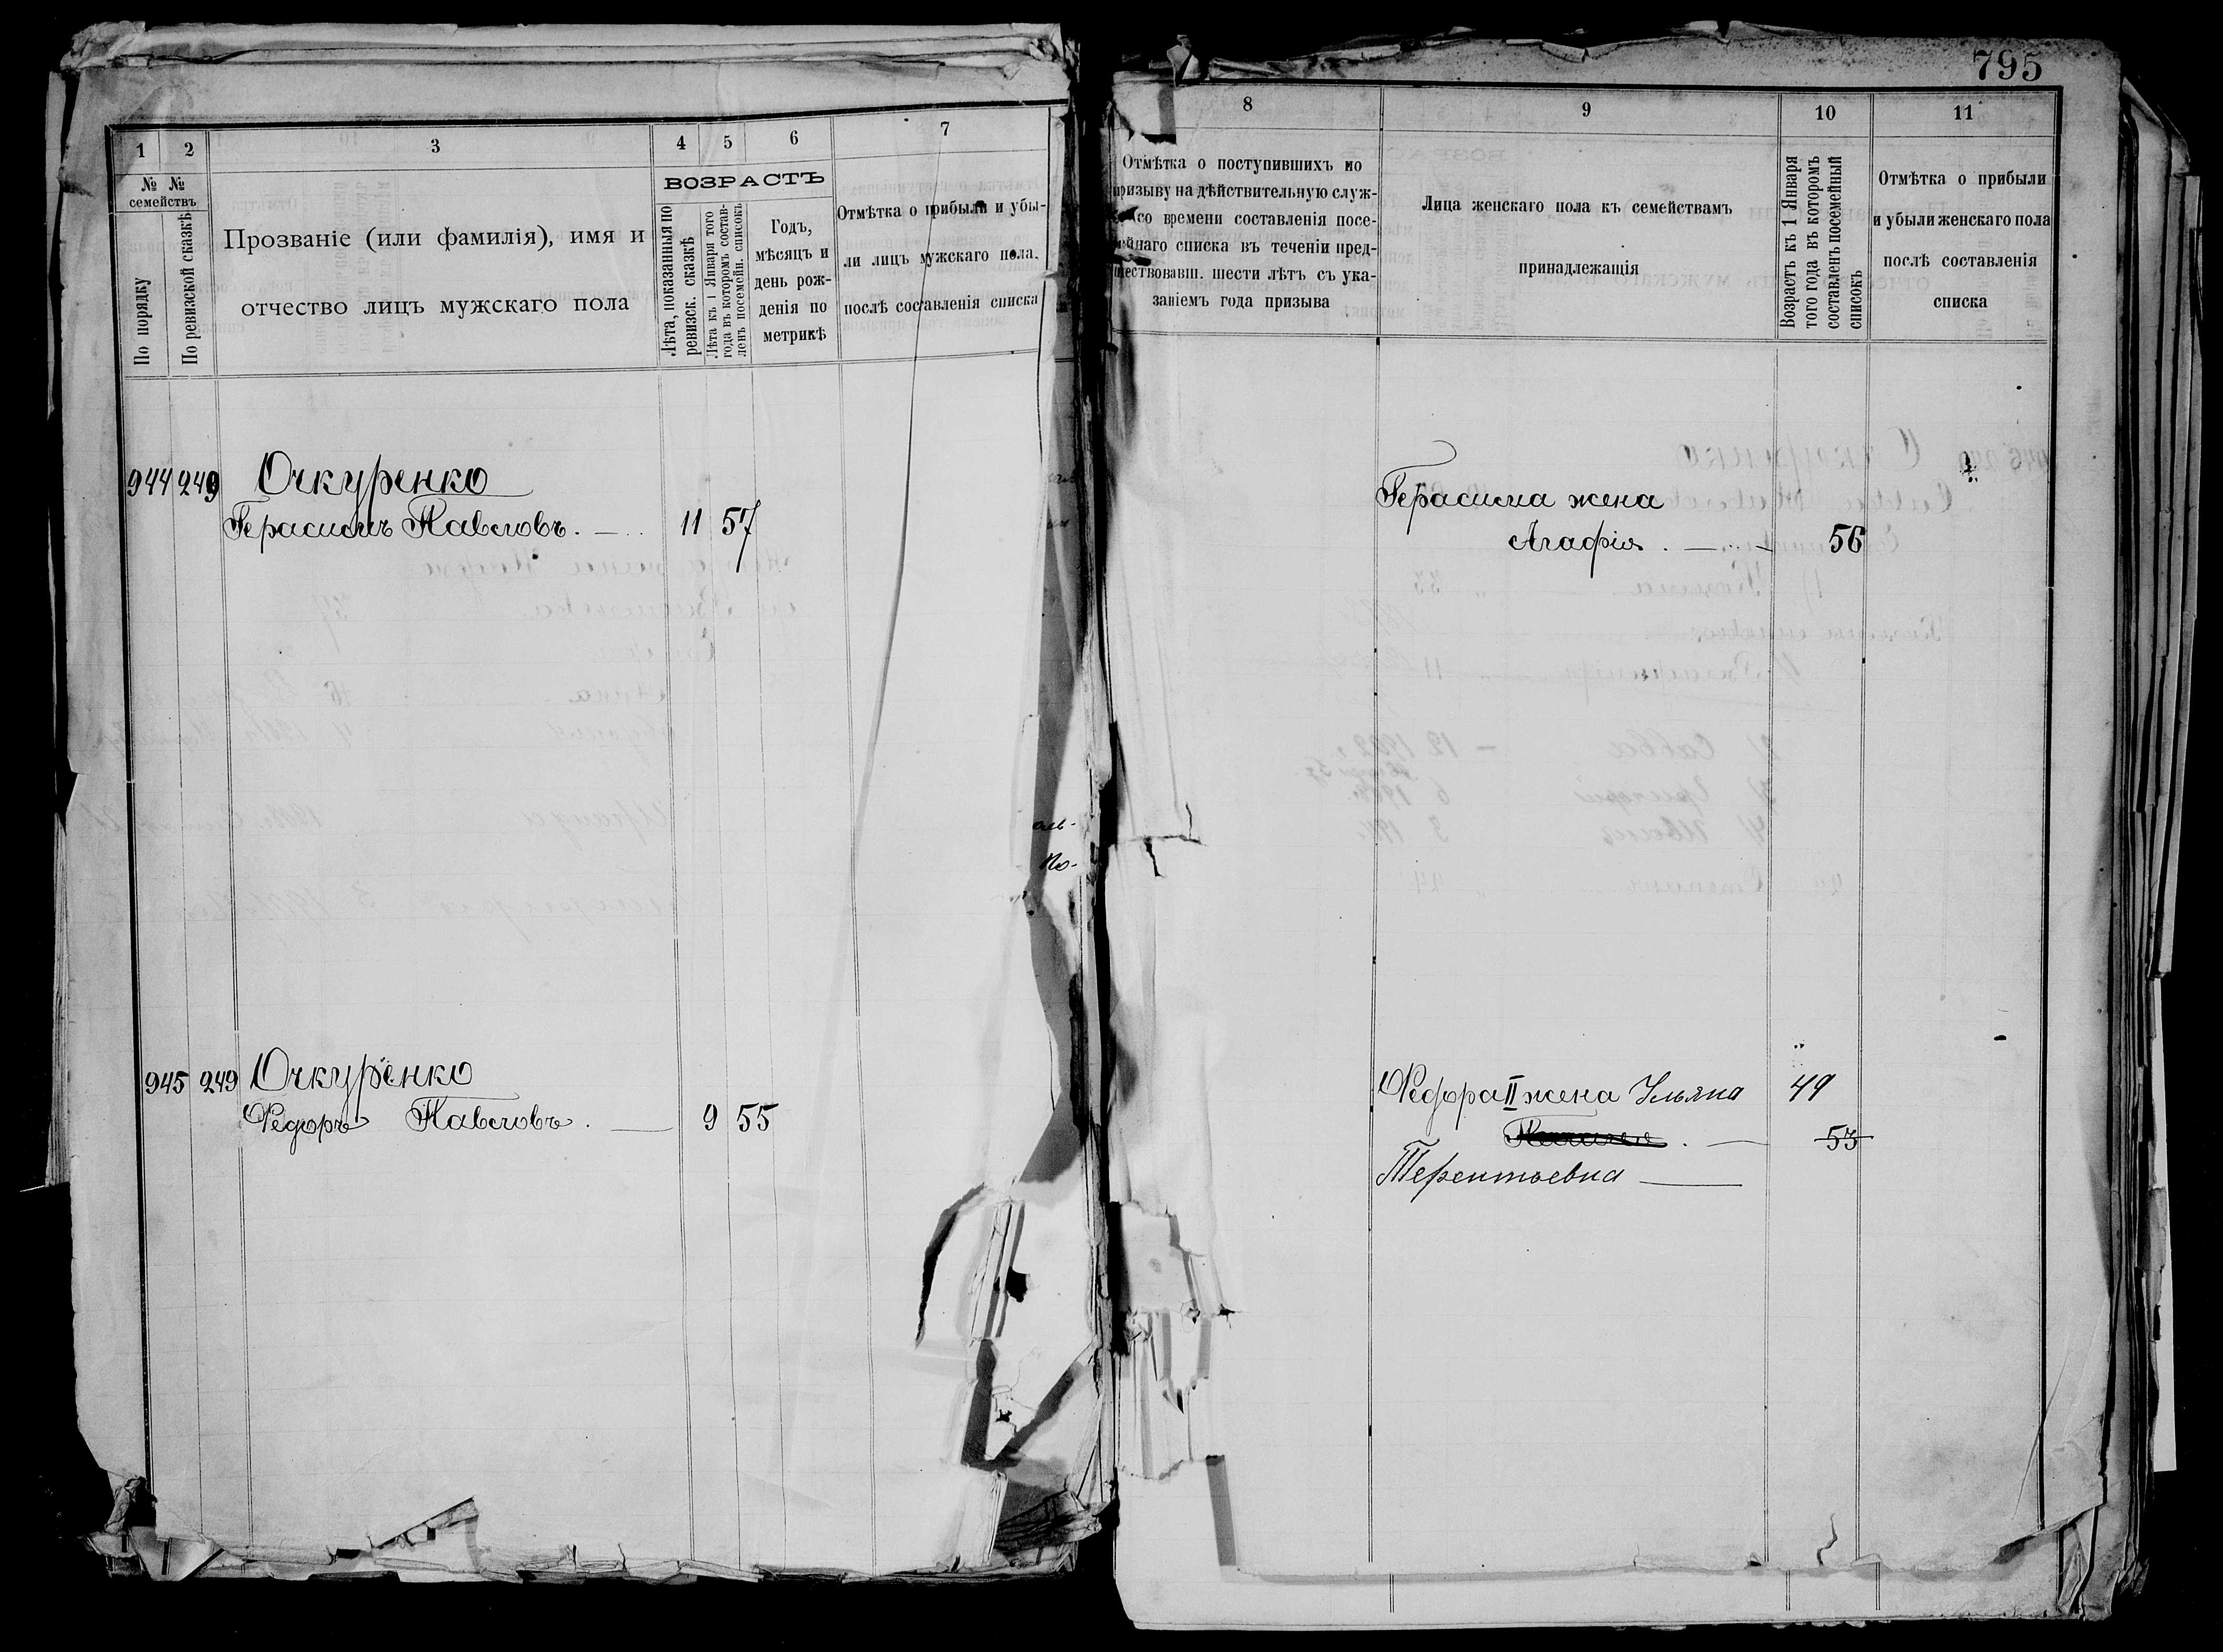 795
1 2 3 4 5 6 7
№ № семействъ
По порядку
По ревизской сказкѣ
Прозваніе (или фамилія), имя и
отчество лицъ мужскаго пола
ВОЗРАСТЪ
Лѣта, показанныя по
ревизск. сказкѣ
Лѣта къ 1 Января того
года въ которомъ состав-
ленъ посемейн. списокъ
Годъ,
мѣсяцъ и
день рож-
денія по
метрикѣ
Отмѣтка о прибыли и убы-
ли лицъ мужскаго пола,
послѣ составленія списка
8 9 10 11
Отмѣтка о поступившихъ по
призыву на дѣйствительную служ-
со времени составленія посе-
мейнаго списка въ теченіи пред-
шествовавш. шести лѣтъ съ ука-
заніемъ года призыва
Лица женскаго пола къ семействамъ
принадлежащія
Возрастъ къ 1 Января
того года въ которомъ
составленъ посемейный
списокъ
Отмѣтка о прибыли
и убыли женскаго пола
послѣ составленія
списка
944 249 Очкуренко
Герасимъ Павловъ. — 11 57
Герасима жена
Агафія. — 56
945 249 Очкуренко
Федоръ Павловъ. — 9 55
Федора II жена Ульяна 49
53
Терентьевна —